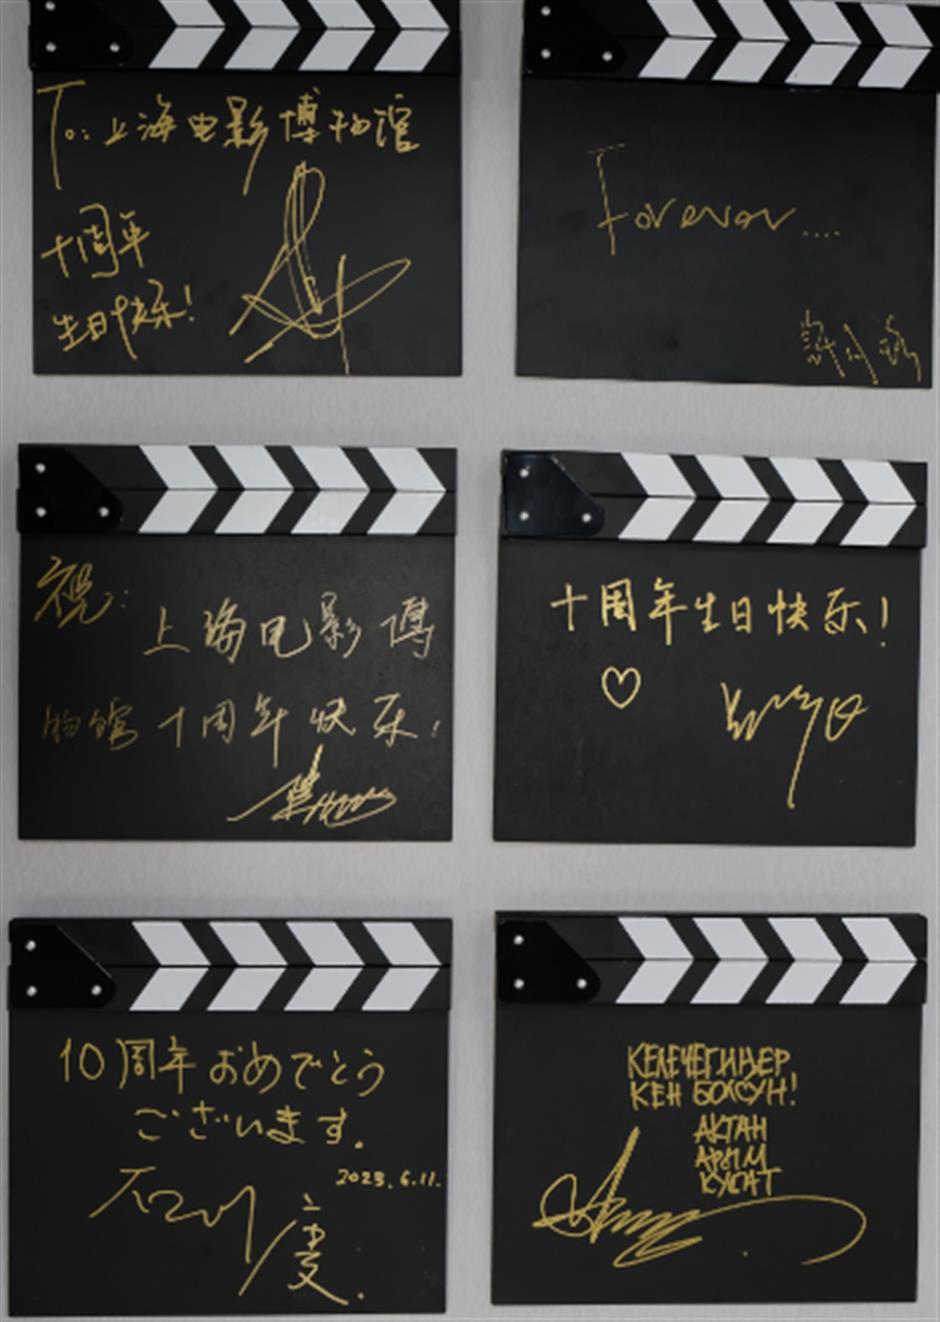 To:上海电影博物馆
十周年
生日快乐!
Forever....
祝:
上海电影博
物馆十周年快乐!
十周年生日快乐!
10周年おめでとう
ございます.
2023.6.11.
石川慶.
КЕЛЕЧЕГИҢЕР
КЕН БОЛСУН!
АКТАН
АРЫМ
КУБАТ